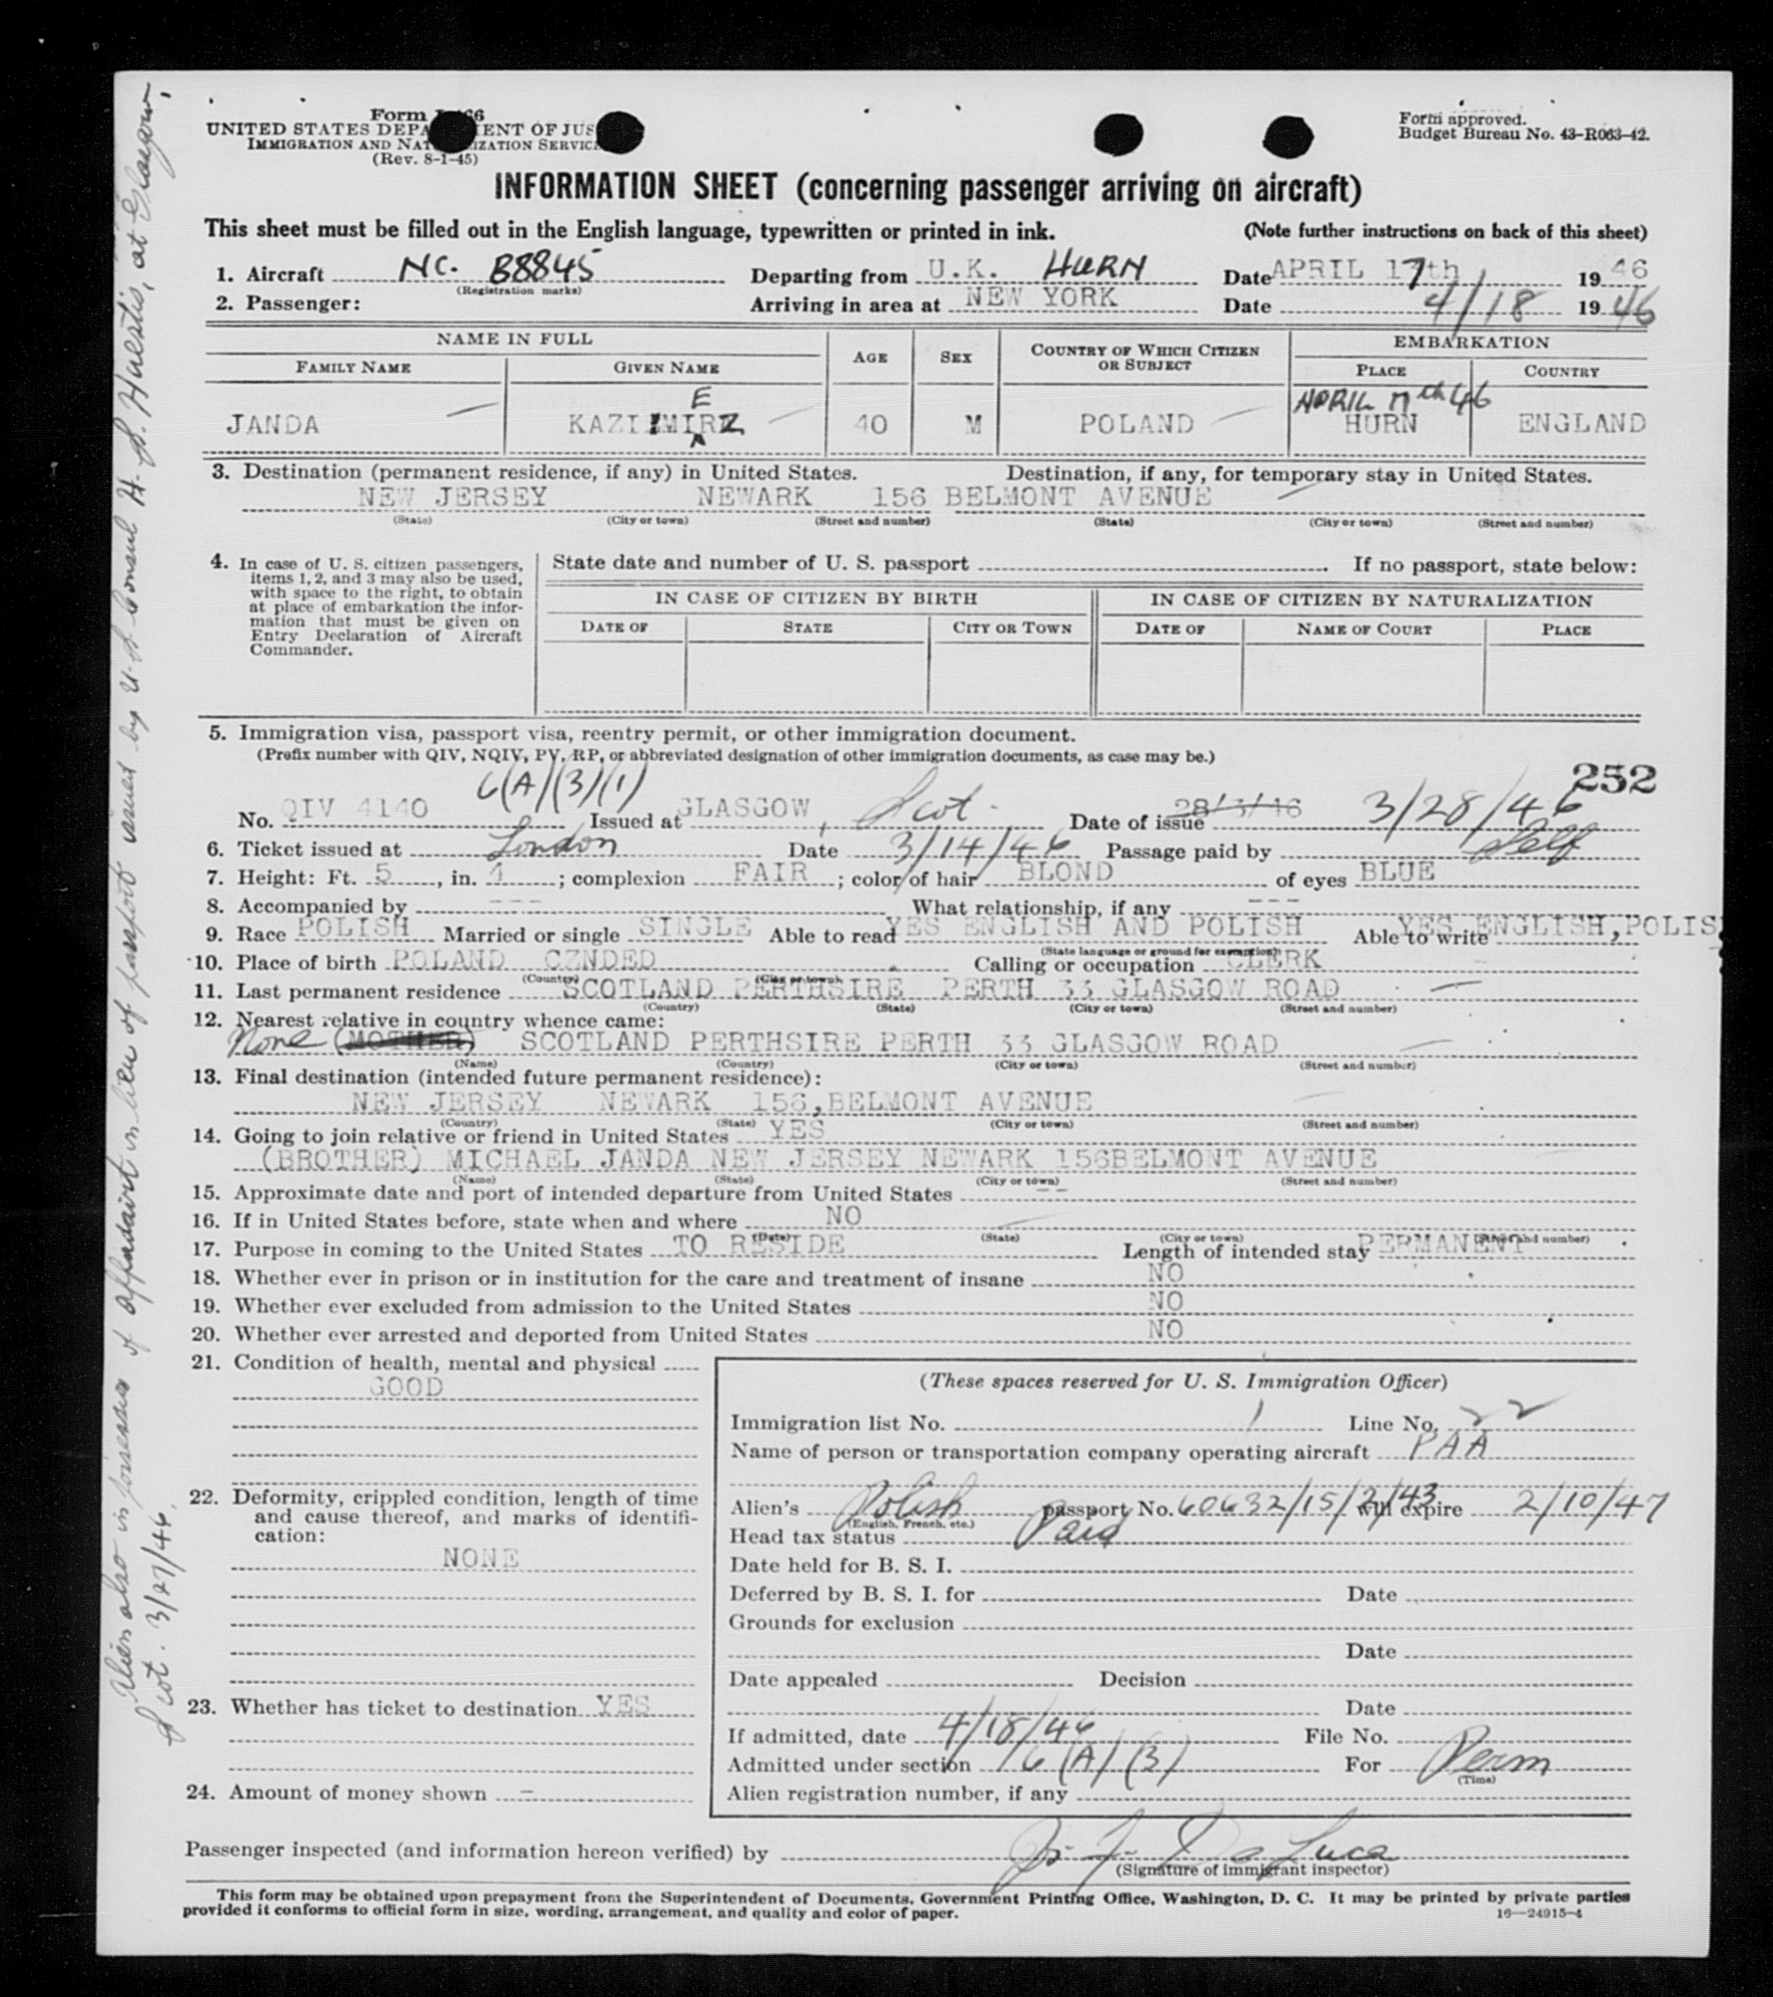 Form I-466
UNITED STATES DEPARTMENT OF JUSTICE
IMMIGRATION AND NATURALIZATION SERVICE
(Rev. 8-1-45)
Form approved.
Budget Bureau No. 43-R063-42.
INFORMATION SHEET (concerning passenger arriving on aircraft)
This sheet must be filled out in the English language, typewritten or printed in ink. (Note further instructions on back of this sheet)
1. Aircraft NC. 88845 Departing from U.K. HURN Date APRIL 17th 1946
(Registration marks)
2. Passenger: Arriving in area at NEW YORK Date 4/18 1946
NAME IN FULL AGE SEX COUNTRY OF WHICH CITIZEN OR SUBJECT EMBARKATION
FAMILY NAME GIVEN NAME PLACE COUNTRY
E APRIL 17th 46
JANDA KAZIMIRZ 40 M POLAND HURN ENGLAND
3. Destination (permanent residence, if any) in United States. Destination, if any, for temporary stay in United States.
NEW JERSEY NEWARK 156 BELMONT AVENUE
(State) (City or town) (Street and number) (State) (City or town) (Street and number)
4. In case of U. S. citizen passengers, items 1, 2, and 3 may also be used, with space to the right, to obtain at place of embarkation the information that must be given on Entry Declaration of Aircraft Commander.
State date and number of U. S. passport . If no passport, state below:
IN CASE OF CITIZEN BY BIRTH IN CASE OF CITIZEN BY NATURALIZATION
DATE OF STATE CITY OR TOWN DATE OF NAME OF COURT PLACE
5. Immigration visa, passport visa, reentry permit, or other immigration document.
(Prefix number with QIV, NQIV, PV, RP, or abbreviated designation of other immigration documents, as case may be.)
252
6(A)(3)(1)
No. QIV 4140 Issued at GLASGOW, Scot. Date of issue 28/3/46 3/28/46
6. Ticket issued at London Date 3/14/46 Passage paid by Self
7. Height: Ft. 5, in. 4; complexion FAIR; color of hair BLOND of eyes BLUE
8. Accompanied by --- What relationship, if any ---
9. Race POLISH Married or single SINGLE Able to read YES ENGLISH AND POLISH Able to write YES ENGLISH, POLIS
(State language or ground for exemption)
10. Place of birth POLAND CZNDED Calling or occupation CLERK
(Country) (City or town)
11. Last permanent residence SCOTLAND PERTHSIRE PERTH 33 GLASGOW ROAD
(Country) (State) (City or town) (Street and number)
12. Nearest relative in country whence came:
None (MOTHER) SCOTLAND PERTHSIRE PERTH 33 GLASGOW ROAD
(Name) (Country) (City or town) (Street and number)
13. Final destination (intended future permanent residence):
NEW JERSEY NEWARK 156, BELMONT AVENUE
(Country) (State) (City or town) (Street and number)
14. Going to join relative or friend in United States YES
(BROTHER) MICHAEL JANDA NEW JERSEY NEWARK 156BELMONT AVENUE
(Name) (State) (City or town) (Street and number)
15. Approximate date and port of intended departure from United States --
16. If in United States before, state when and where NO
(Date) (State) (City or town) (Street and number)
17. Purpose in coming to the United States TO RESIDE Length of intended stay PERMANENT
18. Whether ever in prison or in institution for the care and treatment of insane NO
19. Whether ever excluded from admission to the United States NO
20. Whether ever arrested and deported from United States NO
21. Condition of health, mental and physical
GOOD
22. Deformity, crippled condition, length of time and cause thereof, and marks of identification:
NONE
23. Whether has ticket to destination YES
24. Amount of money shown -
(These spaces reserved for U. S. Immigration Officer)
Immigration list No. 1 Line No. 22
Name of person or transportation company operating aircraft PAA
Alien's Polish passport No. 60632/15/2/43 will expire 2/10/47
(English, French, etc.)
Head tax status Paid
Date held for B. S. I.
Deferred by B. S. I. for Date
Grounds for exclusion
Date
Date appealed Decision
Date
If admitted, date 4/18/46 File No.
Admitted under section 6(A)(3) For Perm
(Time)
Alien registration number, if any
Passenger inspected (and information hereon verified) by De Luca
(Signature of immigrant inspector)
This form may be obtained upon prepayment from the Superintendent of Documents, Government Printing Office, Washington, D. C. It may be printed by private parties
provided it conforms to official form in size, wording, arrangement, and quality and color of paper. 16—24915-4
Alien also in possession of affidavit in lieu of passport issued by U.S. Consul H. S. Huestis, at Glasgow,
Scot. 3/27/46.